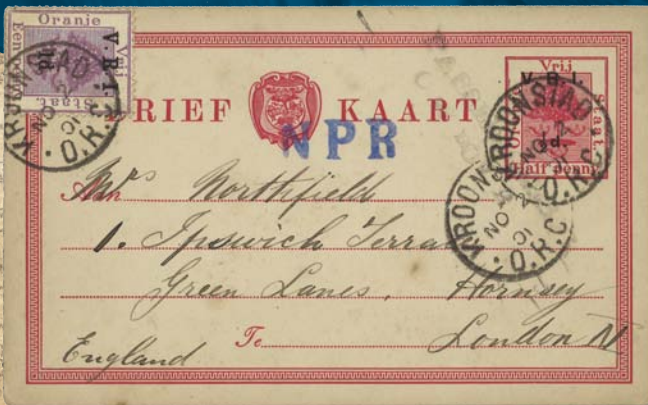 Oranje
Vrij
Staat.
Een
V. R. I.
KROONSTAD
NO 2
01
O.R.C.
BRIEF KAART
NPR
Vrij
V. R. I.
Staat.
½d.
Half penny
KROONSTAD
NO 2
01
O.R.C.
KROON
NO 2
01
O.R.C.
Aan Mrs Northfield
1. Ipswich Terrace
Green Lanes. Hornsey
Te London N
England